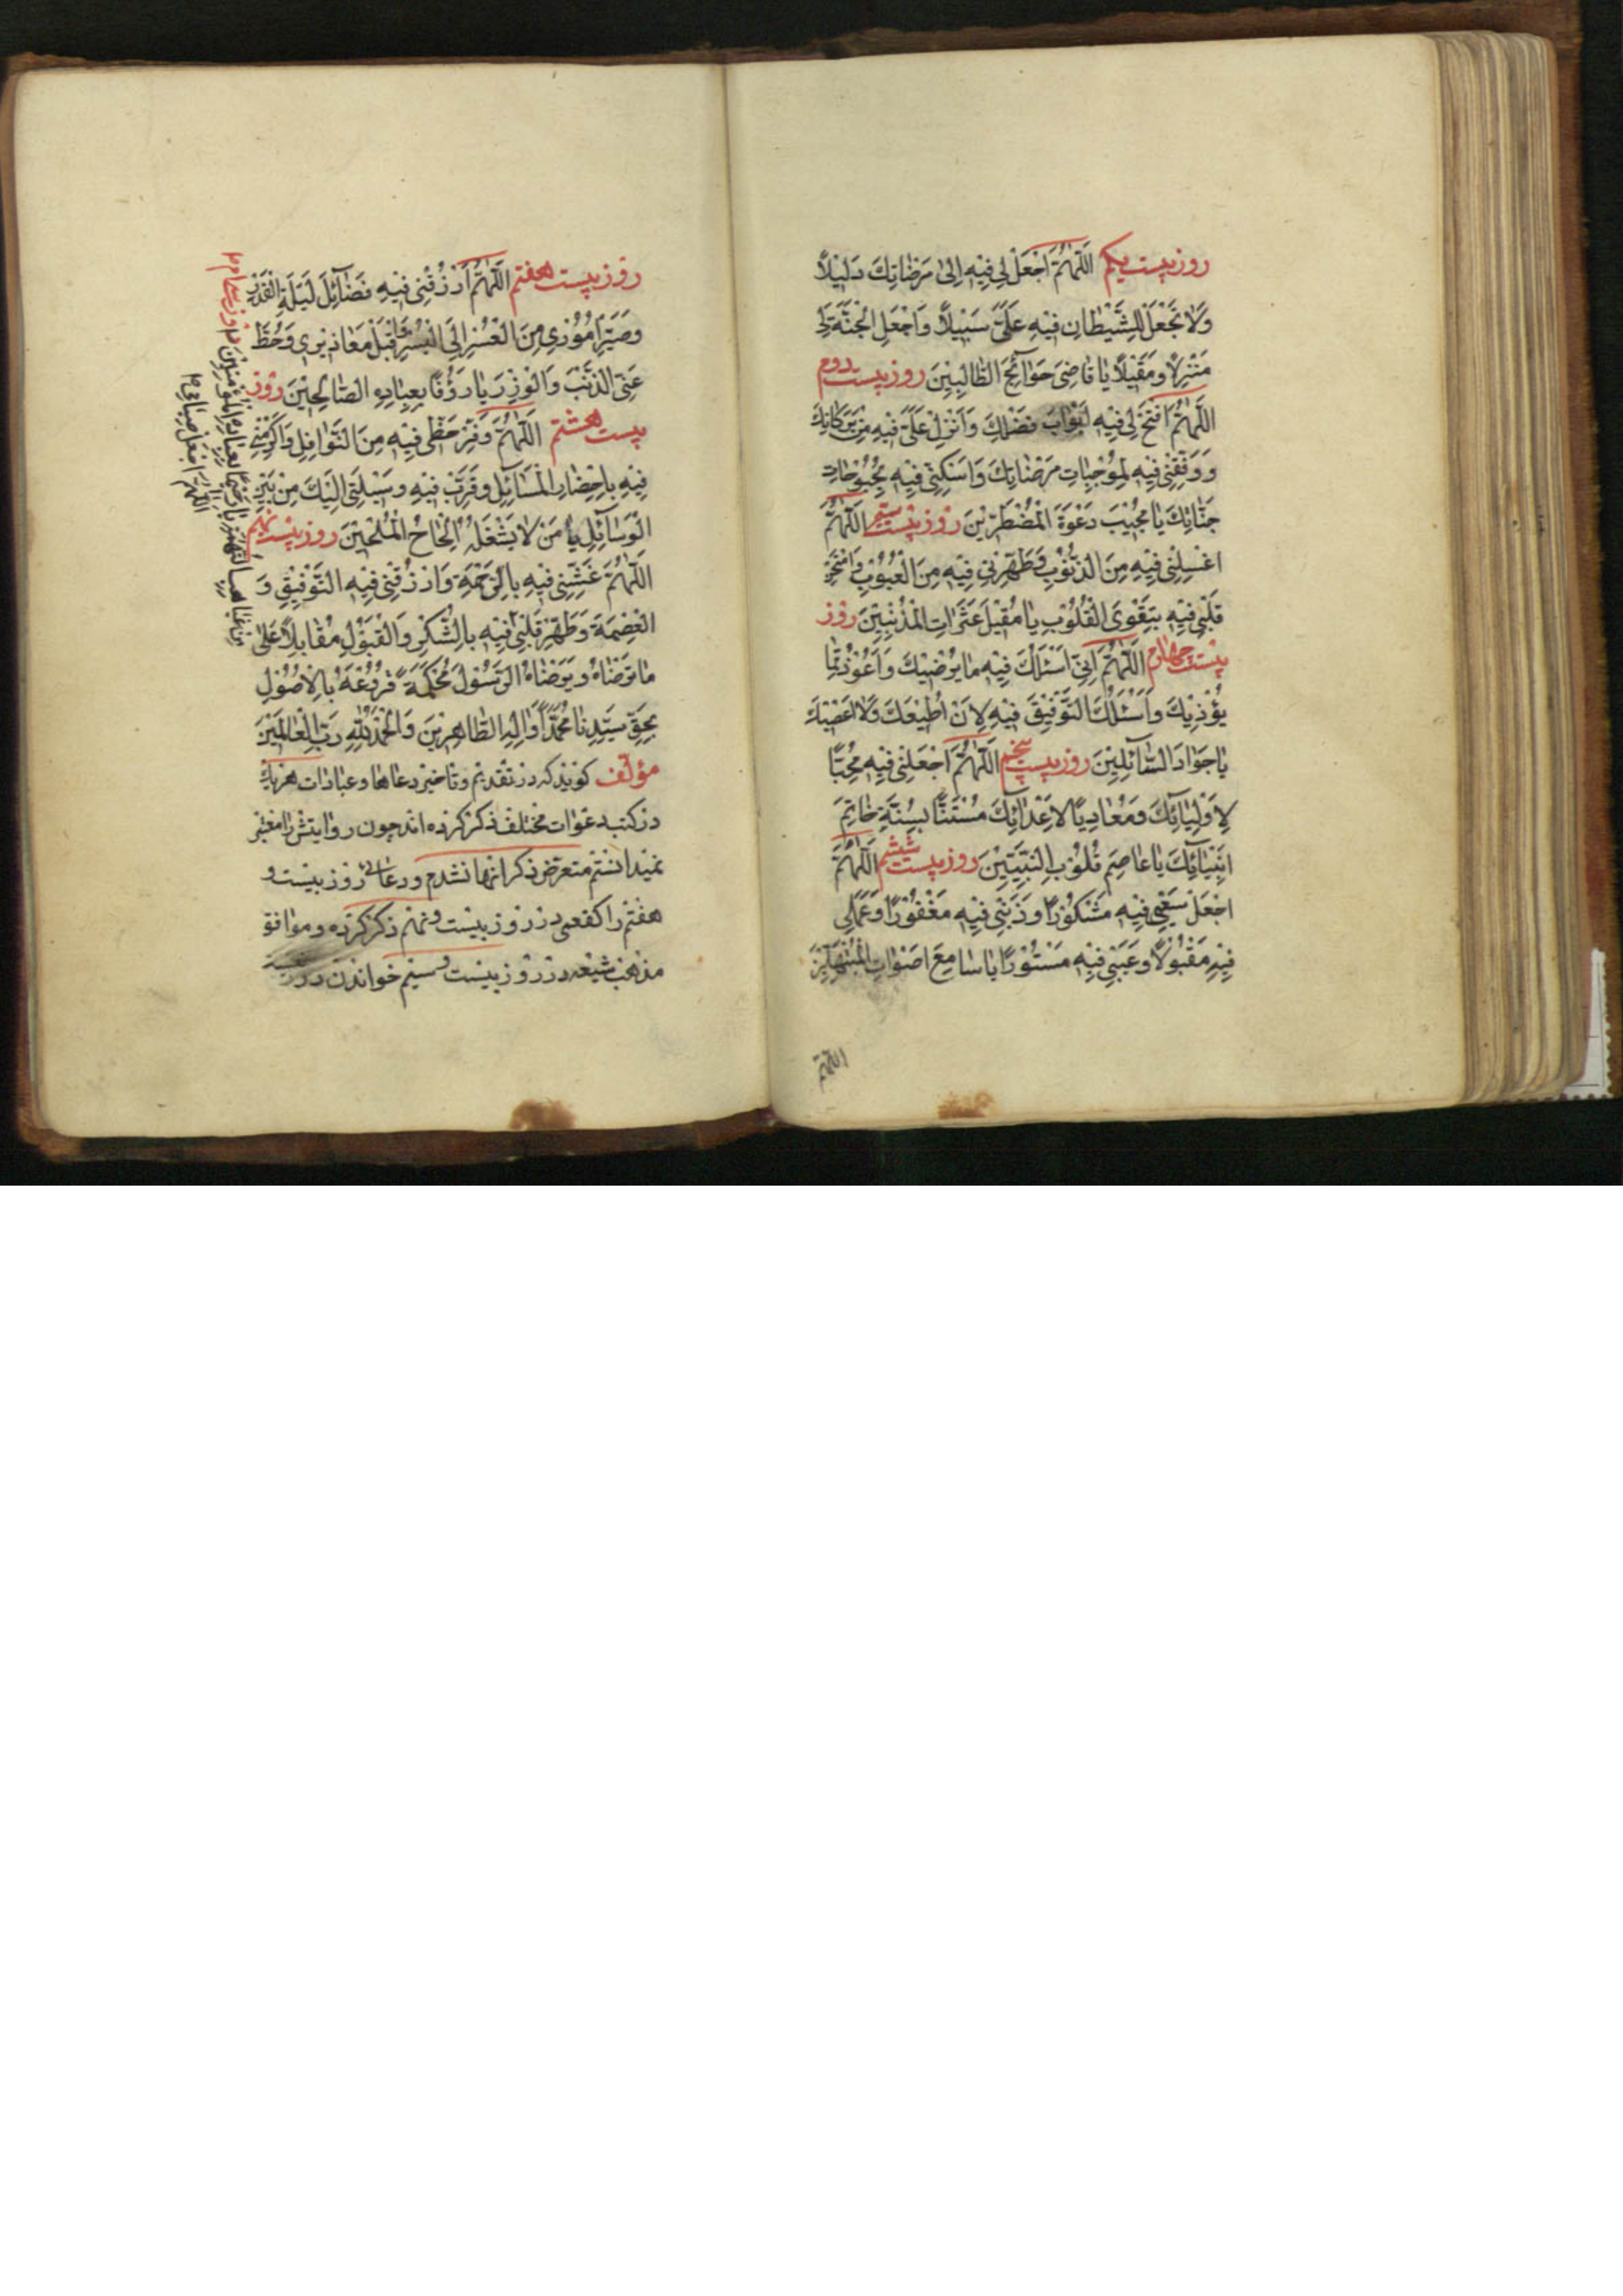 روز بیست یکم اَللّٰهُمَّ اجْعَلْ لِی فِیْهِ اِلیٰ مَرَضٰاتِكَ دَلِیْلًا
وَلاٰ تَجْعَلْ لِلشَّیْطٰانِ فِیْهِ عَلَیَّ سَبِیْلًا وَاجْعَلِ الْجَنَّةَ لِی
مَنْزِلًا وَمَقِیْلًا یٰا قٰاضِیَ حَوٰائِجَ الطّٰالِبِیْنَ روز بیست دوم
اَللّٰهُمَّ افْتَحْ لِی فِیْهِ اَبْوٰابَ فَضْلِكَ وَاَنْزِلْ عَلَیَّ فِیْهِ مِنْ بَرَكٰاتِكَ
وَوَفِّقْنِی فِیْهِ لِمُوْجِبٰاتِ مَرْضٰاتِكَ وَاَسْكِنِّی فِیْهِ بُحْبُوْحٰاتِ
جَنّٰاتِكَ یٰا مُجِیْبَ دَعْوَةَ الْمُضْطَرِّیْنَ روز بیست سیم اَللّٰهُمَّ
اغْسِلْنِی فِیْهِ مِنَ الذُّنُوْبِ وَطَهِّرْنِی فِیْهِ مِنَ الْعُیُوْبِ وَامْتَحِنْ
قَلْبِی فِیْهِ بِتَقْوَی الْقُلُوْبِ یٰا مُقِیْلَ عَثَرٰاتِ الْمُذْنِبِیْنَ روز
بیست چهارم اَللّٰهُمَّ اِنِّی اَسْئَلُكَ فِیْهِ مٰا یُرْضِیْكَ وَاَعُوْذُ مِمّٰا
یُؤْذِیْكَ وَاَسْئَلُكَ التَّوْفِیْقَ فِیْهِ لِاَنْ اُطِیْعَكَ وَلاٰ اَعْصِیْكَ
یٰا جَوٰادَ السّٰآئِلِیْنَ روز بیست پنجم اَللّٰهُمَّ اجْعَلْنِی فِیْهِ مُحِبًّا
لِاَوْلِیٰائِكَ وَمُعٰادِیًا لِاَعْدٰائِكَ مُسْتَنًّا بِسُنَّةِ خٰاتِمَ
اَنْبِیٰائِكَ یٰا عٰاصِمَ قُلُوْبِ النَّبِیِّیْنَ روز بیست ششم اَللّٰهُمَّ
اجْعَلْ سَعْیِی فِیْهِ مَشْكُوْرًا وَذَنْبِی فِیْهِ مَغْفُوْرًا وَعَمَلِی
فِیْهِ مَقْبُوْلًا وَعَیْبِی فِیْهِ مَسْتُوْرًا یٰا سٰامِعَ اَصْوٰاتِ الْمُبْتَهِلِیْنَ
اللّهمّ
روز بیست هفتم اَللّٰهُمَّ ارْزُقْنِی فِیْهِ فَضٰآئِلَ لَیْلَةِ الْقَدْرِ
وَصَیِّرْ اُمُوْرِی مِنَ الْعُسْرِ اِلَی الْیُسْرِ وَاقْبَلْ مَعٰاذِیْرِی وَحُطَّ
عَنِّی الذَّنْبَ وَالْوِزْرَ یٰا رَؤُفًا بِعِبٰادِهِ الصّٰالِحِیْنَ روز
بیست هشتم اَللّٰهُمَّ وَفِّرْ حَظِّی فِیْهِ مِنَ النَّوٰافِلِ وَاَكْرِمْنِی
فِیْهِ بِاِحْضٰارِ الْمَسٰائِلِ وَقَرِّبْ فِیْهِ وَسِیْلَتِی اِلَیْكَ مِنْ بَیْنِ
الْوَسٰآئِلِ یٰا مَنْ لاٰ یَشْغَلُهُ اِلْحٰاحُ الْمُلِحِّیْنَ روز بیست نهم
اَللّٰهُمَّ غَشِّنِی فِیْهِ بِالرَّحْمَةِ وَارْزُقْنِی فِیْهِ التَّوْفِیْقِ وَ
الْعِصْمَةَ وَطَهِّرْ قَلْبِی فِیْهِ بِالشُّكْرِ وَالْقَبُوْلِ مُقٰابِلًا عَلیٰ
مٰا تَرْضٰاهُ وَیَرْضٰاهُ الرَّسُوْلُ مُحْكَمَةً فُرُوْعَهُ بِالْاُصُوْلِ
بِحَقِّ سَیِّدِنٰا مُحَمَّدًا وَاٰلِهِ الطّٰاهِرِیْنَ وَالْحَمْدُ لِلّٰهِ رَبِّ الْعٰالَمِیْنَ
مؤلّف كوید كه در تقدیم و تاخیر دعاها و عبادات هر یك
در كتب دعوات مختلف ذكر كرده اند چون روایتش را معتبر
نمیدانستم متعرض ذكر انها نشدم و دعاى روز بیست و
هفتم را كفعمی در روز بیست و نهم ذكر كرده و موافق
مذهب شیعه در روز بیست و سیم خواندن
روز سی ام
اللهم اجعل صیامی